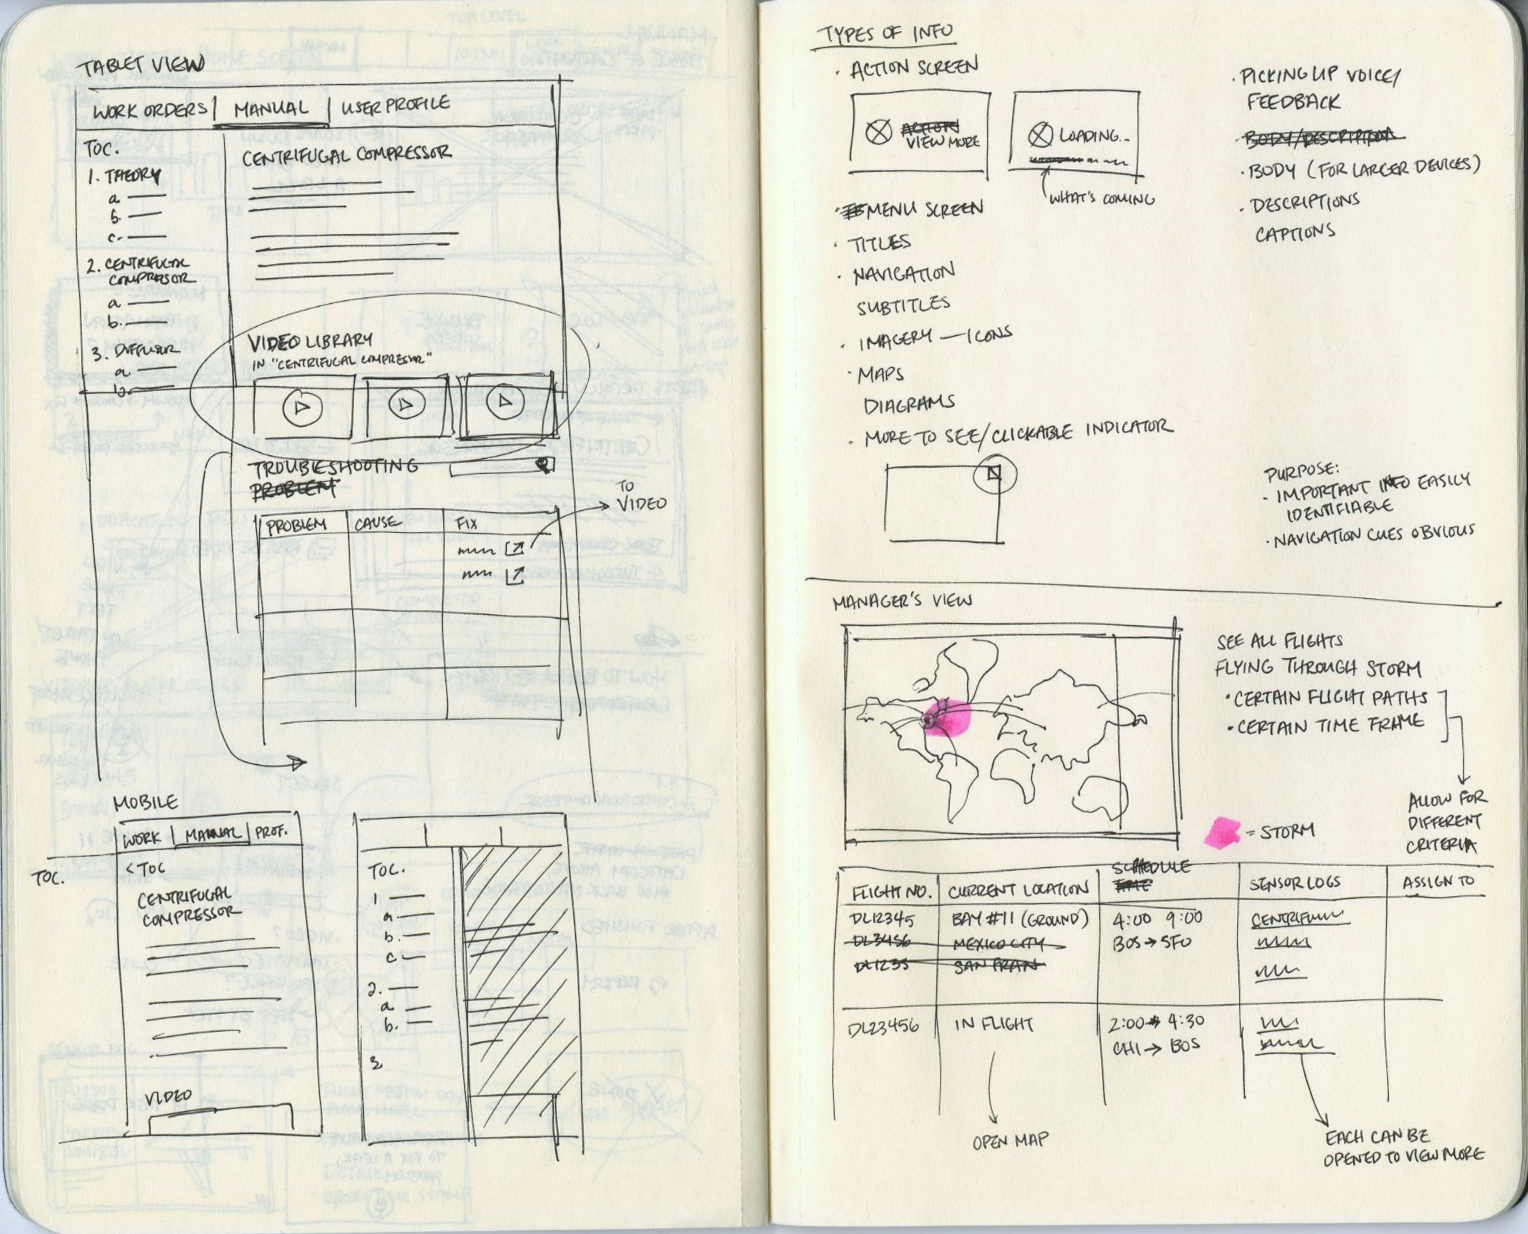 TABLET VIEW
WORK ORDERS | MANUAL | USER PROFILE
TOC.
1. THEORY
a
b.
c.
2. CENTRIFUGAL
COMPRESSOR
a
b.
3. DIFFUSOR
a
b.
CENTRIFUGAL COMPRESSOR
VIDEO LIBRARY
IN "CENTRIFUGAL COMPRESSOR"
TROUBLESHOOTING
PROBLEM
PROBLEM CAUSE FIX
TO
VIDEO
MOBILE
WORK | MANUAL | PROF.
TOC.
< TOC
CENTRIFUGAL
COMPRESSOR
VIDEO
TOC.
1
a
b.
c
2.
a
b.
3
TYPES OF INFO
· ACTION SCREEN
ACTION
VIEW MORE
LOADING..
WHAT'S COMING
· MENU SCREEN
· TITLES
· NAVIGATION
SUBTITLES
· IMAGERY — ICONS
· MAPS
DIAGRAMS
· MORE TO SEE/CLICKABLE INDICATOR
· PICKING UP VOICE/
FEEDBACK
BODY/DESCRIPTION
· BODY (FOR LARGER DEVICES)
· DESCRIPTIONS
CAPTIONS
PURPOSE:
· IMPORTANT INFO EASILY
IDENTIFIABLE
· NAVIGATION CUES OBVIOUS
MANAGER'S VIEW
SEE ALL FLIGHTS
FLYING THROUGH STORM
· CERTAIN FLIGHT PATHS
· CERTAIN TIME FRAME
ALLOW FOR
DIFFERENT
CRITERIA
= STORM
FLIGHT NO. CURRENT LOCATION SCHEDULE SENSOR LOGS ASSIGN TO
TIME
DL12345 BAY #11 (GROUND) 4:00 9:00
DL3456 MEXICO CITY BOS → SFO
DL1235 SAN FRAN
DL23456 IN FLIGHT 2:00 → 4:30
CHI → BOS
OPEN MAP
EACH CAN BE
OPENED TO VIEW MORE